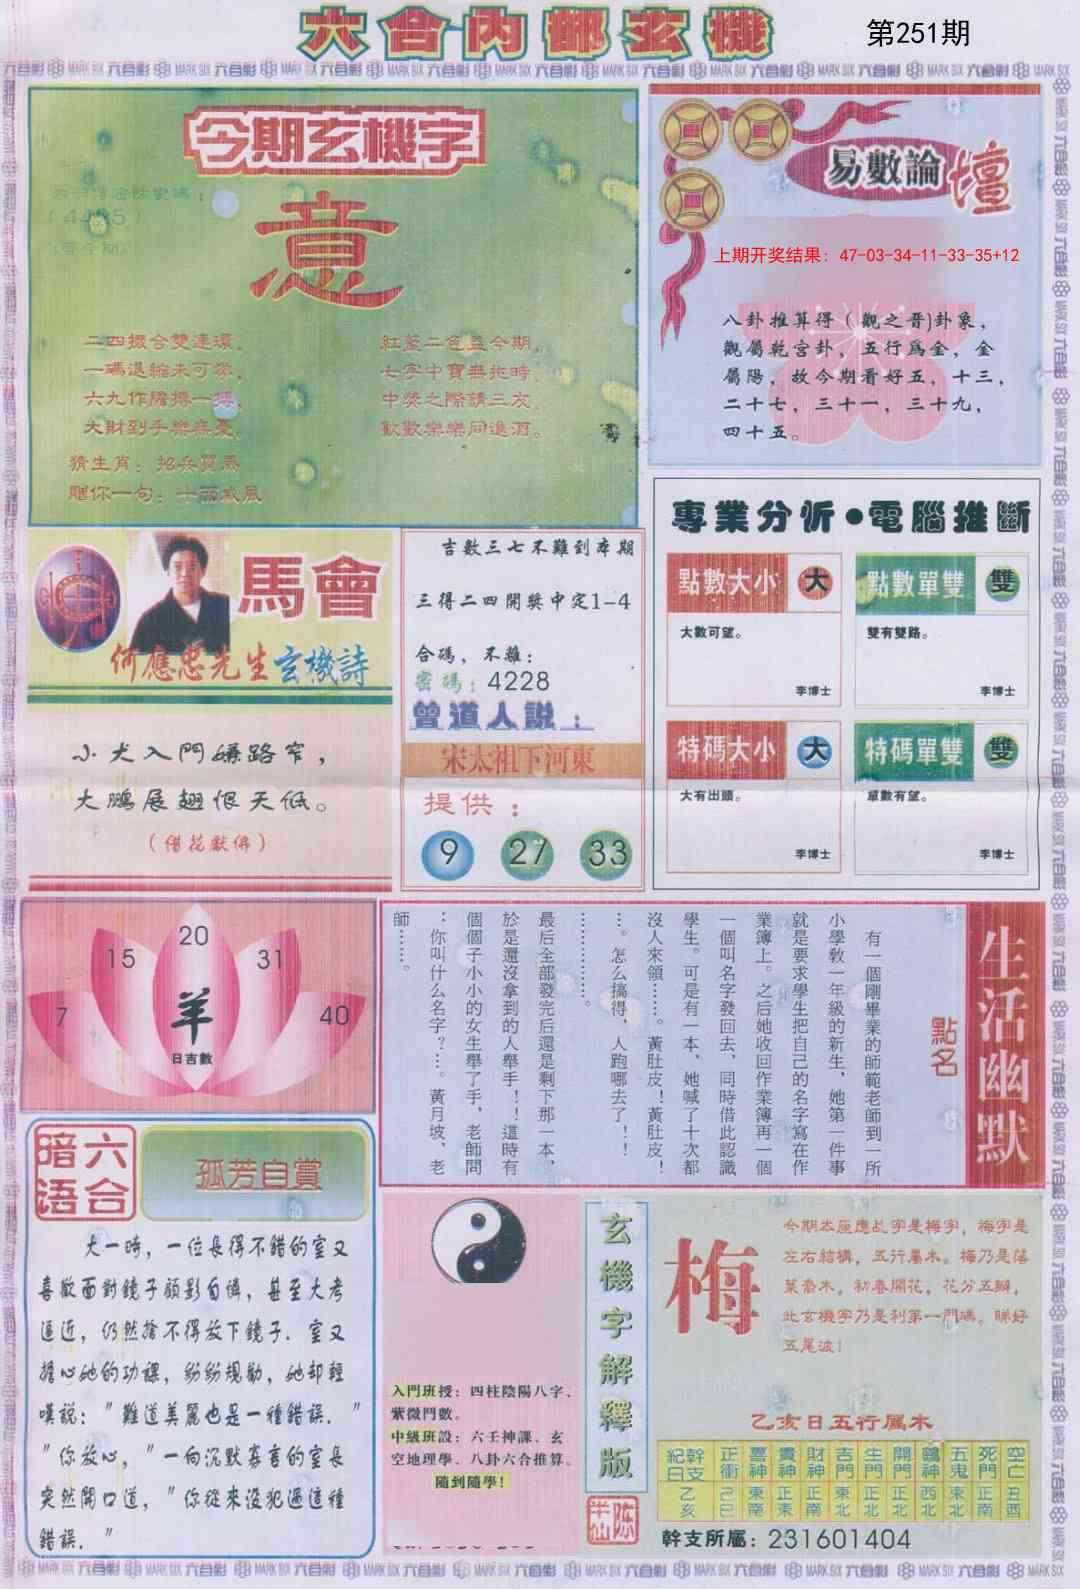 六合內部玄機
第251期
今期玄機字
意
二四掇合雙連環，
一碼退縮未可常，
六九作膽搏一搏，
大財到手樂無憂，
紅藍二色旺今期，
七字中寶無拖時，
中獎之際請三友，
歡歡樂樂同進酒。
猜生肖：招兵買馬
贈你一句：十面威風
易數論壇
上期开奖结果：47-03-34-11-33-35+12
八卦推算得（觀之晉)卦象，
觀屬乾宮卦，五行爲金，金
屬陽，故今期看好五，十三，
二十七，三十一，三十九，
四十五。
馬會
何應忠先生玄機詩
小犬入門嫌路窄，
大鵬展翅恨天低。
（借花獻佛）
吉數三七不難到本期
三得二四開獎中定1-4
合碼，不難：
密碼：4228
曾道人説：
宋太祖下河東
提供：
9 27 33
專業分析●電腦推斷
點數大小 大
大數可望。
李博士
點數單雙 雙
雙有雙路。
李博士
特碼大小 大
大有出頭。
李博士
特碼單雙 雙
單數有望。
李博士
7 15 20 31 40
羊
日吉數
生活幽默
點名
有一個剛畢業的師範老師到一所
小學敎一年級的新生，她第一件事
就是要求學生把自己的名字寫在作
業簿上。之后她收回作業簿再一個
一個叫名字發回去，同時借此認識
學生。可是有一本，她喊了十次都
沒人來領……。黃肚皮！黃肚皮！
…。怎么搞得，人跑哪去了！！
…………。
最后全部發完后還是剩下那一本，
於是還沒拿到的人舉手！！這時有
個個子小小的女生舉了手，老師問
：你叫什么名字？…。黃月坡，老
師……。
六合暗语
孤芳自賞
大一時，一位長得不錯的室友
喜歡面對鏡子顧影自憐，甚至大考
逼近，仍然捨不得放下鏡子．室友
擔心她的功課，紛紛規勸，她却輕
嘆説："難道美麗也是一種錯誤．"
"你放心，"一向沉默寡言的室長
突然開口道，"你從來没犯過這種
錯誤．"
入門班授：四柱陰陽八字、
紫微鬥數。
中級班設：六壬神課、玄
空地理學、八卦六合推算。
隨到隨學！
玄機字解釋版
陈半仙
梅
今期本座應占字是梅字，梅字是
左右結構，五行屬木。梅乃是落
葉喬木，初春開花，花分五瓣，
此玄機字乃是利第一門碼。睇好
五尾波！
乙亥日五行屬木
紀日幹支 正衝 喜神 貴神 財神 吉門 生門 開門 鶴神 五鬼 死門 空亡
乙亥 己巳 東南 正東 正南 東北 正北 正北 西北 東北 正南 丑酉
幹支所屬：231601404